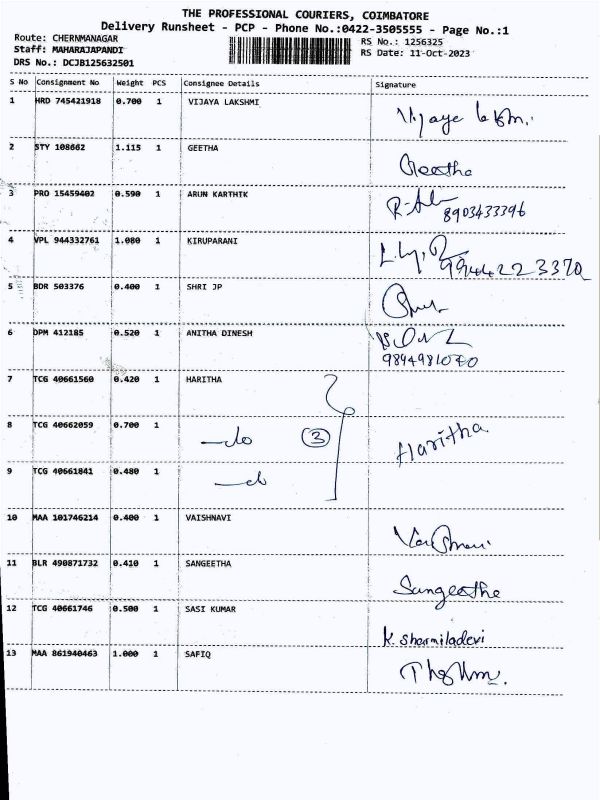 THE PROFESSIONAL COURIERS, COIMBATORE
Delivery Runsheet - PCP - Phone No.:0422-3505555 - Page No.:1
Route: CHERNMANAGAR
Staff: MAHARAJAPANDI
DRS No.: DCJB125632501
RS No.: 1256325
RS Date: 11-Oct-2023
S No Consignment No Weight PCS Consignee Details Signature
1 HRD 745421918 0.700 1 VIJAYA LAKSHMI
2 STY 108662 1.115 1 GEETHA Geetha
3 PRO 15459402 0.590 1 ARUN KARTHIK
8903433396
4 VPL 944332761 1.080 1 KIRUPARANI
9944223370
5 BDR 503376 0.400 1 SHRI JP
6 DPM 412185 0.520 1 ANITHA DINESH
7 TCG 40661560 0.420 1 HARITHA
8 TCG 40662059 0.700 1 —do 3 Haritha
9 TCG 40661841 0.480 1 —do
10 MAA 101746214 0.400 1 VAISHNAVI
11 BLR 490871732 0.410 1 SANGEETHA Sangeetha
12 TCG 40661746 0.500 1 SASI KUMAR K. Sharmiladevi
13 MAA 861940463 1.000 1 SAFIQ